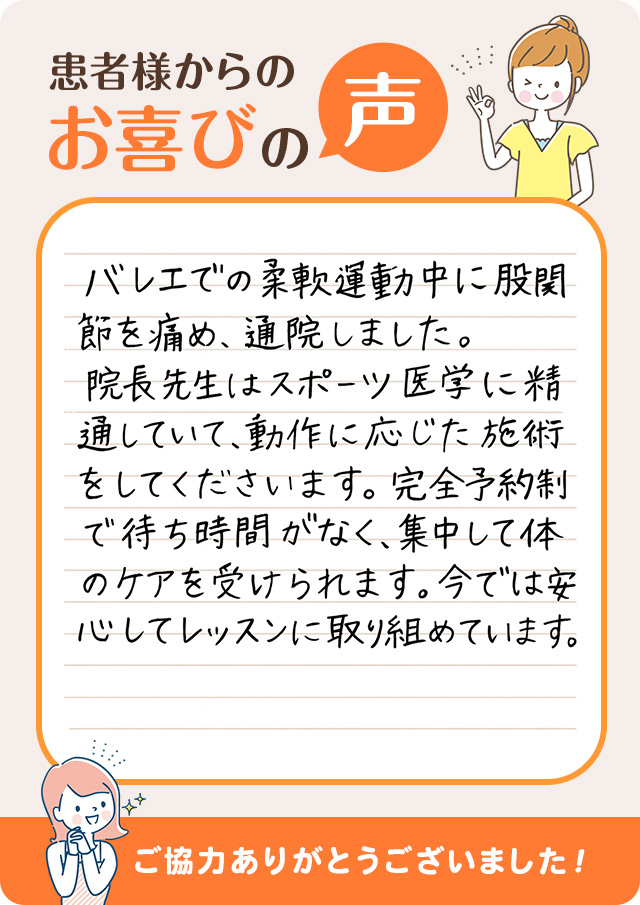 患者様からの
お喜びの声
バレエでの柔軟運動中に股関
節を痛め、通院しました。
院長先生はスポーツ医学に精
通していて、動作に応じた施術
をしてくださいます。完全予約制
で待ち時間がなく、集中して体
のケアを受けられます。今では安
心してレッスンに取り組めています。
ご協力ありがとうございました!